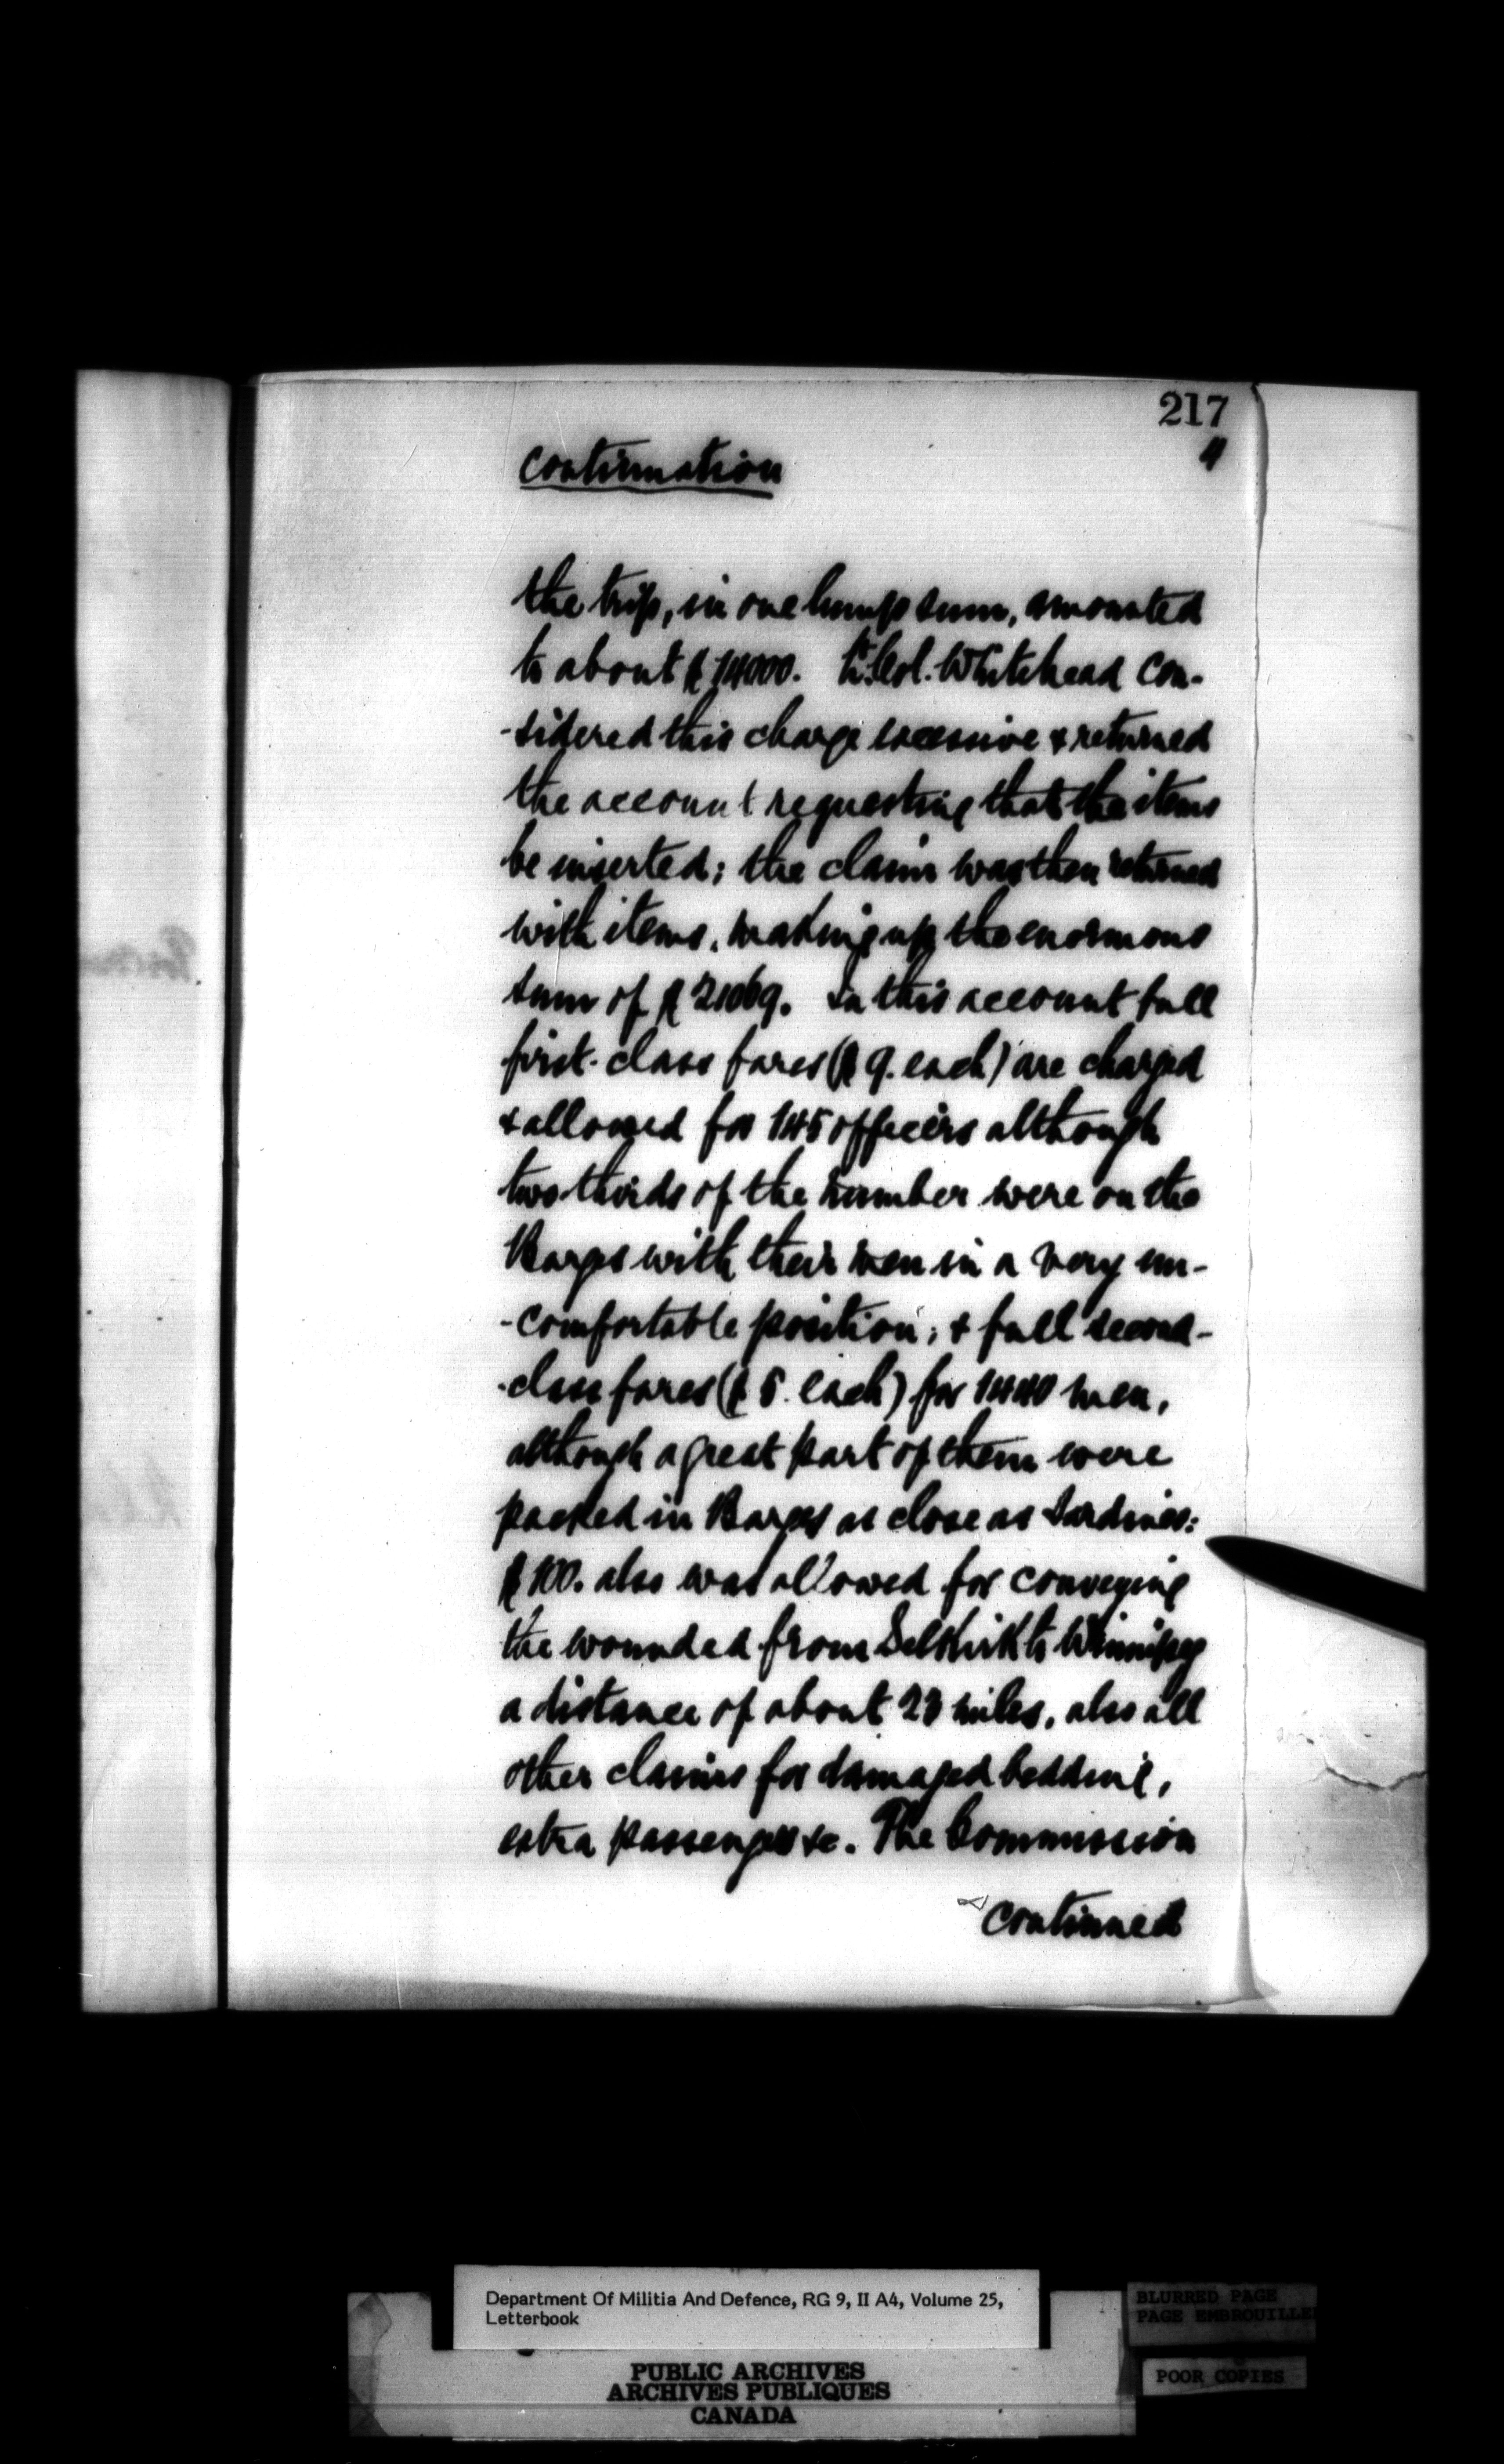 217
4
Continuation
the trip, in one lump sum, amounted
to about $14000. Lt. Col. Whitehead con-
-sidered this charge excessive & returned
the account requesting that the items
be inserted; the claim was then returned
with items, making up the enormous
sum of $21069. In this account full
first-class fares ($9. each) are charged
& allowed for 145 officers although
two thirds of the number were on the
Barges with their men in a very un-
-comfortable position; & full second-
-class fares ($5. each) for 1440 men,
although a great part of them were
packed in Barges as close as Sardines:
$100. also was allowed for conveying
the wounded from Selkirk to Winnipeg
a distance of about 23 miles, also all
other claims for damaged bedding,
extra passengers &c. The Commission
Continued
Department Of Militia And Defence, RG 9, II A4, Volume 25,
Letterbook
BLURRED PAGE
PAGE EMBROUILLE
POOR COPIES
PUBLIC ARCHIVES
ARCHIVES PUBLIQUES
CANADA